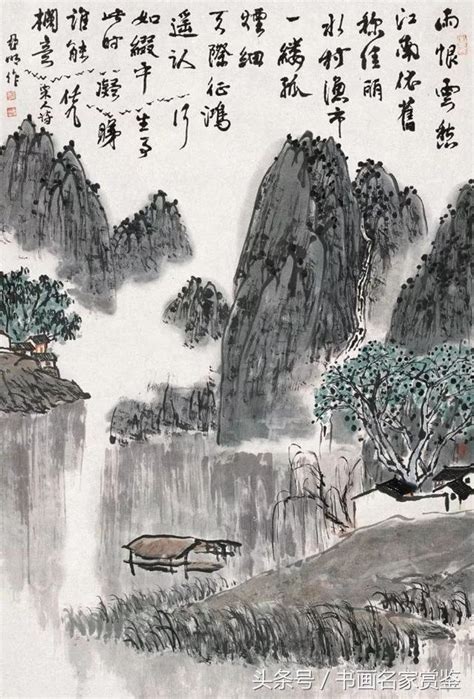 雨恨雲愁
江南依舊
称佳麗
水村漁市
一縷孤
煙細
天際征鴻
遥认行
如綴平生事
此时凝睇
谁能凭
欄意 宋人诗
亚明作
头条号 / 书画名家赏鉴